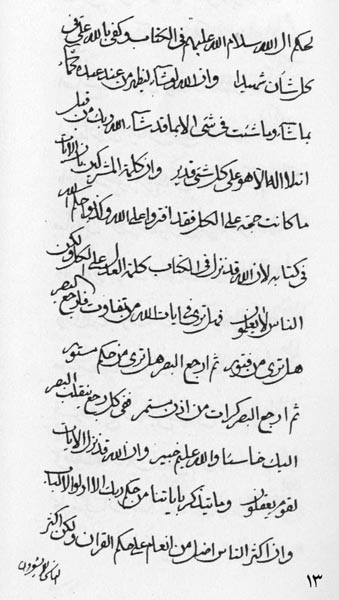 لحكم ال الله سلام الله عليهم في الكتاب وكفى بالله على
كل شأن شهيدا وان الله لو شاء ليظهر من عند عبده
بما شاء وما شئت في شيء الا بما قد شاء الله ربك من قبل
انه لا اله الا هو على كل شيء قدير وان كلمة المشركين
ما كانت حجة على الكل فقد افتروا على الله وكذبوا حكم الله
في كتابه لان الله قد نزل في الكتاب كلمة العدل على الكل ولكن
الناس لا يعلمون فما ترى في ايات الله من تفاوت فارجع البصر
هل ترى من فتور ثم ارجع البصر هل ترى من حكم مستور
ثم ارجع البصر كرات من اذن مستمر ففي كل رجع ينقلب البصر
اليك خاسئا والله عليم خبير وان الله قد نزل الايات
لقوم يعقلون وما يتذكر باياتنا من حكم ربك الا اولوا الالباب
وان اكثر الناس اضل من انعام على حكم القران ولكن اكثر
الناس لا يشهدون
١٣